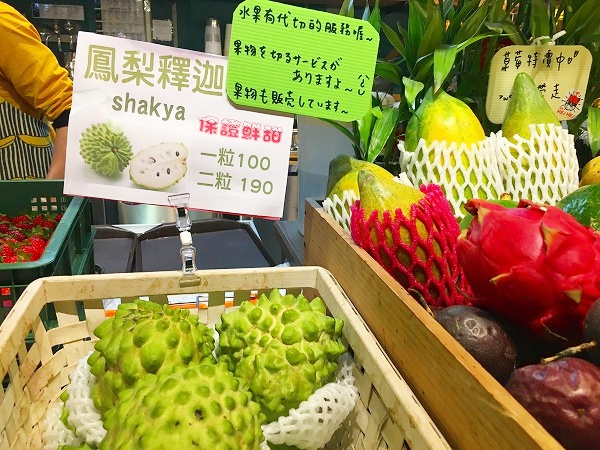 鳳梨釋迦
shakya
保證鮮甜
一粒100
二粒 190
水果有代切的服務喔~
果物を切るサービスが
ありますよ~
果物も販売しています~
草莓特價中